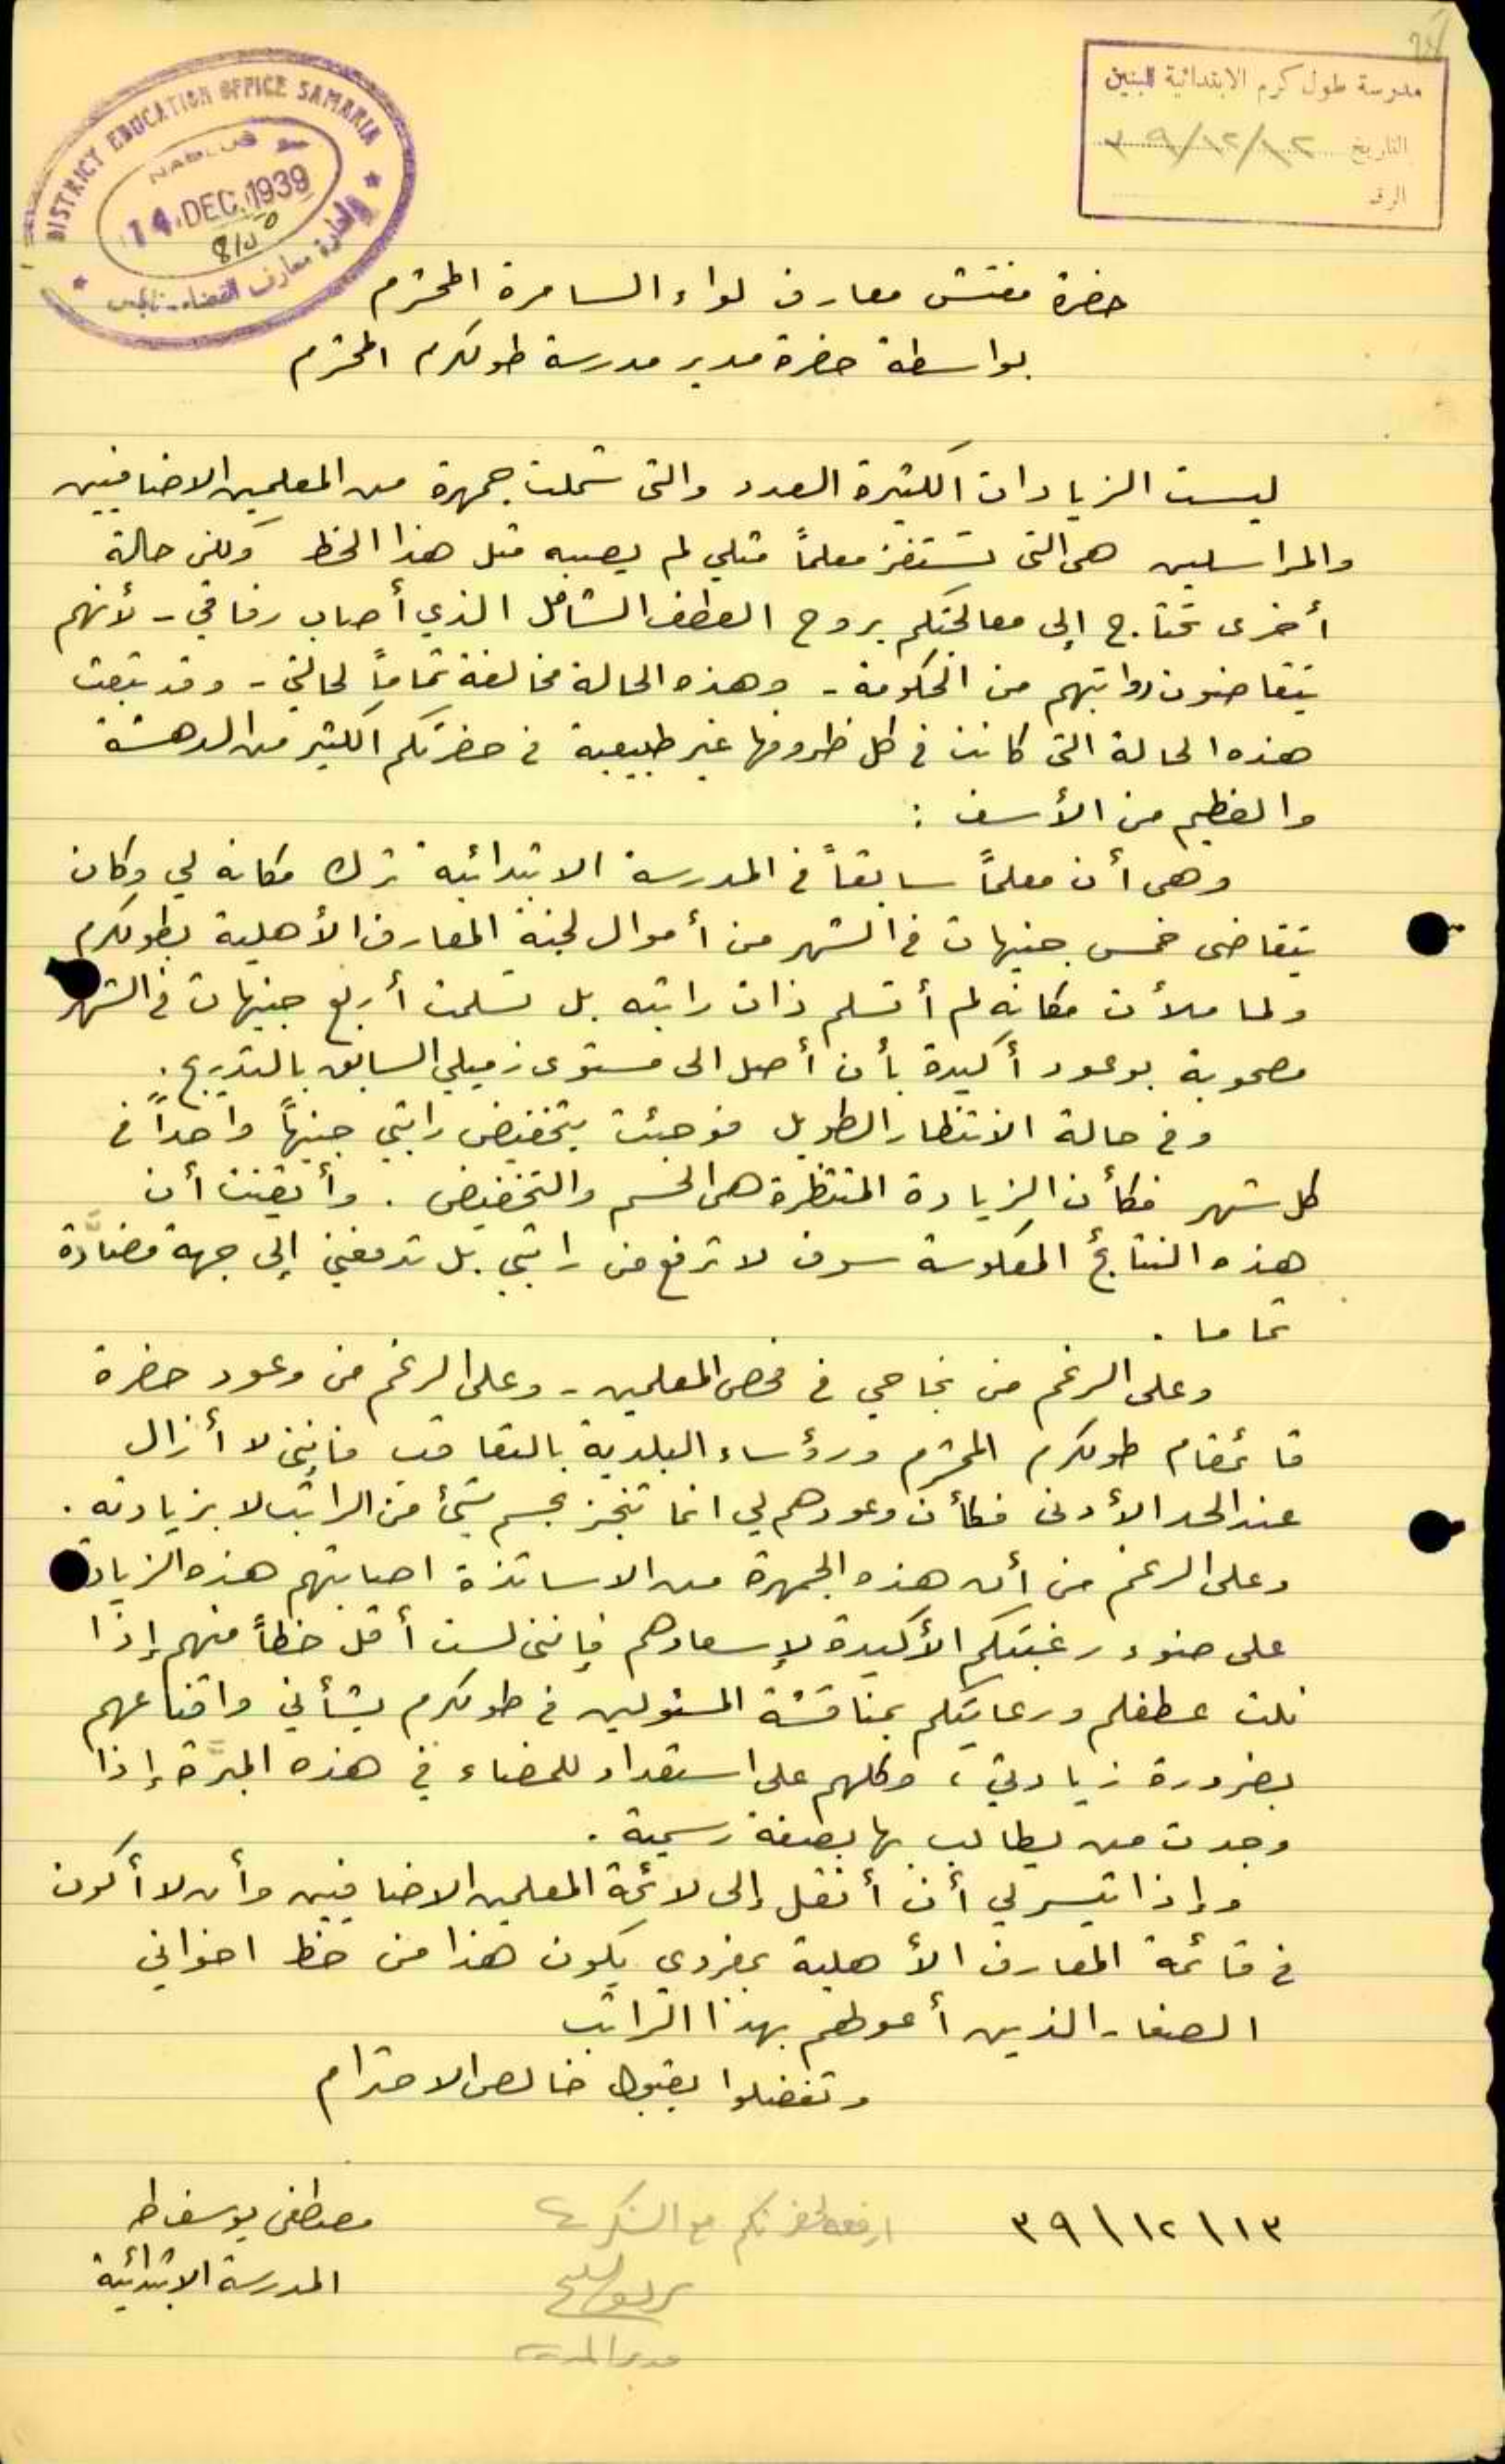 مدرسة طول كرم الابتدائية للبنين
التاريخ ١٢/١٢/٣٩
الرقم
DISTRICT EDUCATION OFFICE SAMARIA
NABLUS
14 DEC. 1939
ادارة معارف القضاء - نابلس
حضرة مفتش معارف لواء السامرة المحترم
بواسطة حضرة مدير مدرسة طولكرم المحترم
ليست الزيادات الكثيرة العدد والتى شملت جمهرة من المعلمين الاضافيين
والمراسلين هى التى تستفز معلماً مثلي لم يصبه مثل هذا الحظ ولكن حالة
أخرى تحتاج إلى معالجتكم بروح العطف الشامل الذي أصاب رفاقي - لأنهم
يتقاضون رواتبهم من الحكومة - وهذه الحالة مخالفة تماماً لحالتي - وقد تبعث
هذه الحالة التى كانت في كل ظروفها غير طبيعية في حضرتكم الكثير من الدهشة
والعظيم من الأسف :
وهى أن معلماً سابقاً في المدرسة الابتدائية ترك مكانه لي وكان
يتقاضى خمس جنيهات في الشهر من أموال لجنة المعارف الأهلية بطولكرم
ولما ملأت مكانه لم أتسلم ذات راتبه بل تسلمت أربع جنيهات في الشهر
مصحوبة بوعود أكيدة بأن أصل الى مستوى زميلي السابق بالتدريج .
وفي حالة الانتظار الطويل فوجئت بتخفيض راتبي جنيهاً واحداً في
كل شهر فكأن الزيادة المنتظرة هى الخسم والتخفيض . وأيقنت أن
هذه النتائج المعكوسة سوف لا ترفع من راتبي بل تدفعني إلى جهة مضادّة
تماما .
وعلى الرغم من نجاحي في فحص المعلمين - وعلى الرغم من وعود حضرة
قائمقام طولكرم المحترم ورؤساء البلدية بالتعاقب فانني لا أزال
عند الحد الأدنى فكأن وعودهم لي انما تنجز بحسم شئ من الراتب لا بزيادته .
وعلى الرغم من أن هذه الجمهرة من الاساتذة اصابتهم هذه الزيادة
على ضوء رغبتكم الأكيدة لإسعادهم فإننى لست أقل حظاً منهم إذا
نلت عطفكم ورعايتكم بمناقشة المسئولين في طولكرم بشأني واقناعهم
بضرورة زيادتي ، وكلهم على استعداد للمضاء في هذه المبرّة إذا
وجدت من يطالب بها بصفة رسمية .
وإذا تيسر لي أن أنقل إلى لائحة المعلمين الاضافيين وأن لا أكون
في قائمة المعارف الأهلية بمفردي يكون هذا من حظ اخواني
الصغار الذين أعولهم بهذا الراتب
وتفضلوا بقبول خالص الاحترام
١٣ \ ١٢ \ ٣٩
ارفعه لحضرتكم مع الشكر
مصطفى يوسف طه
المدرسة الابتدائية
مدير المدرسة